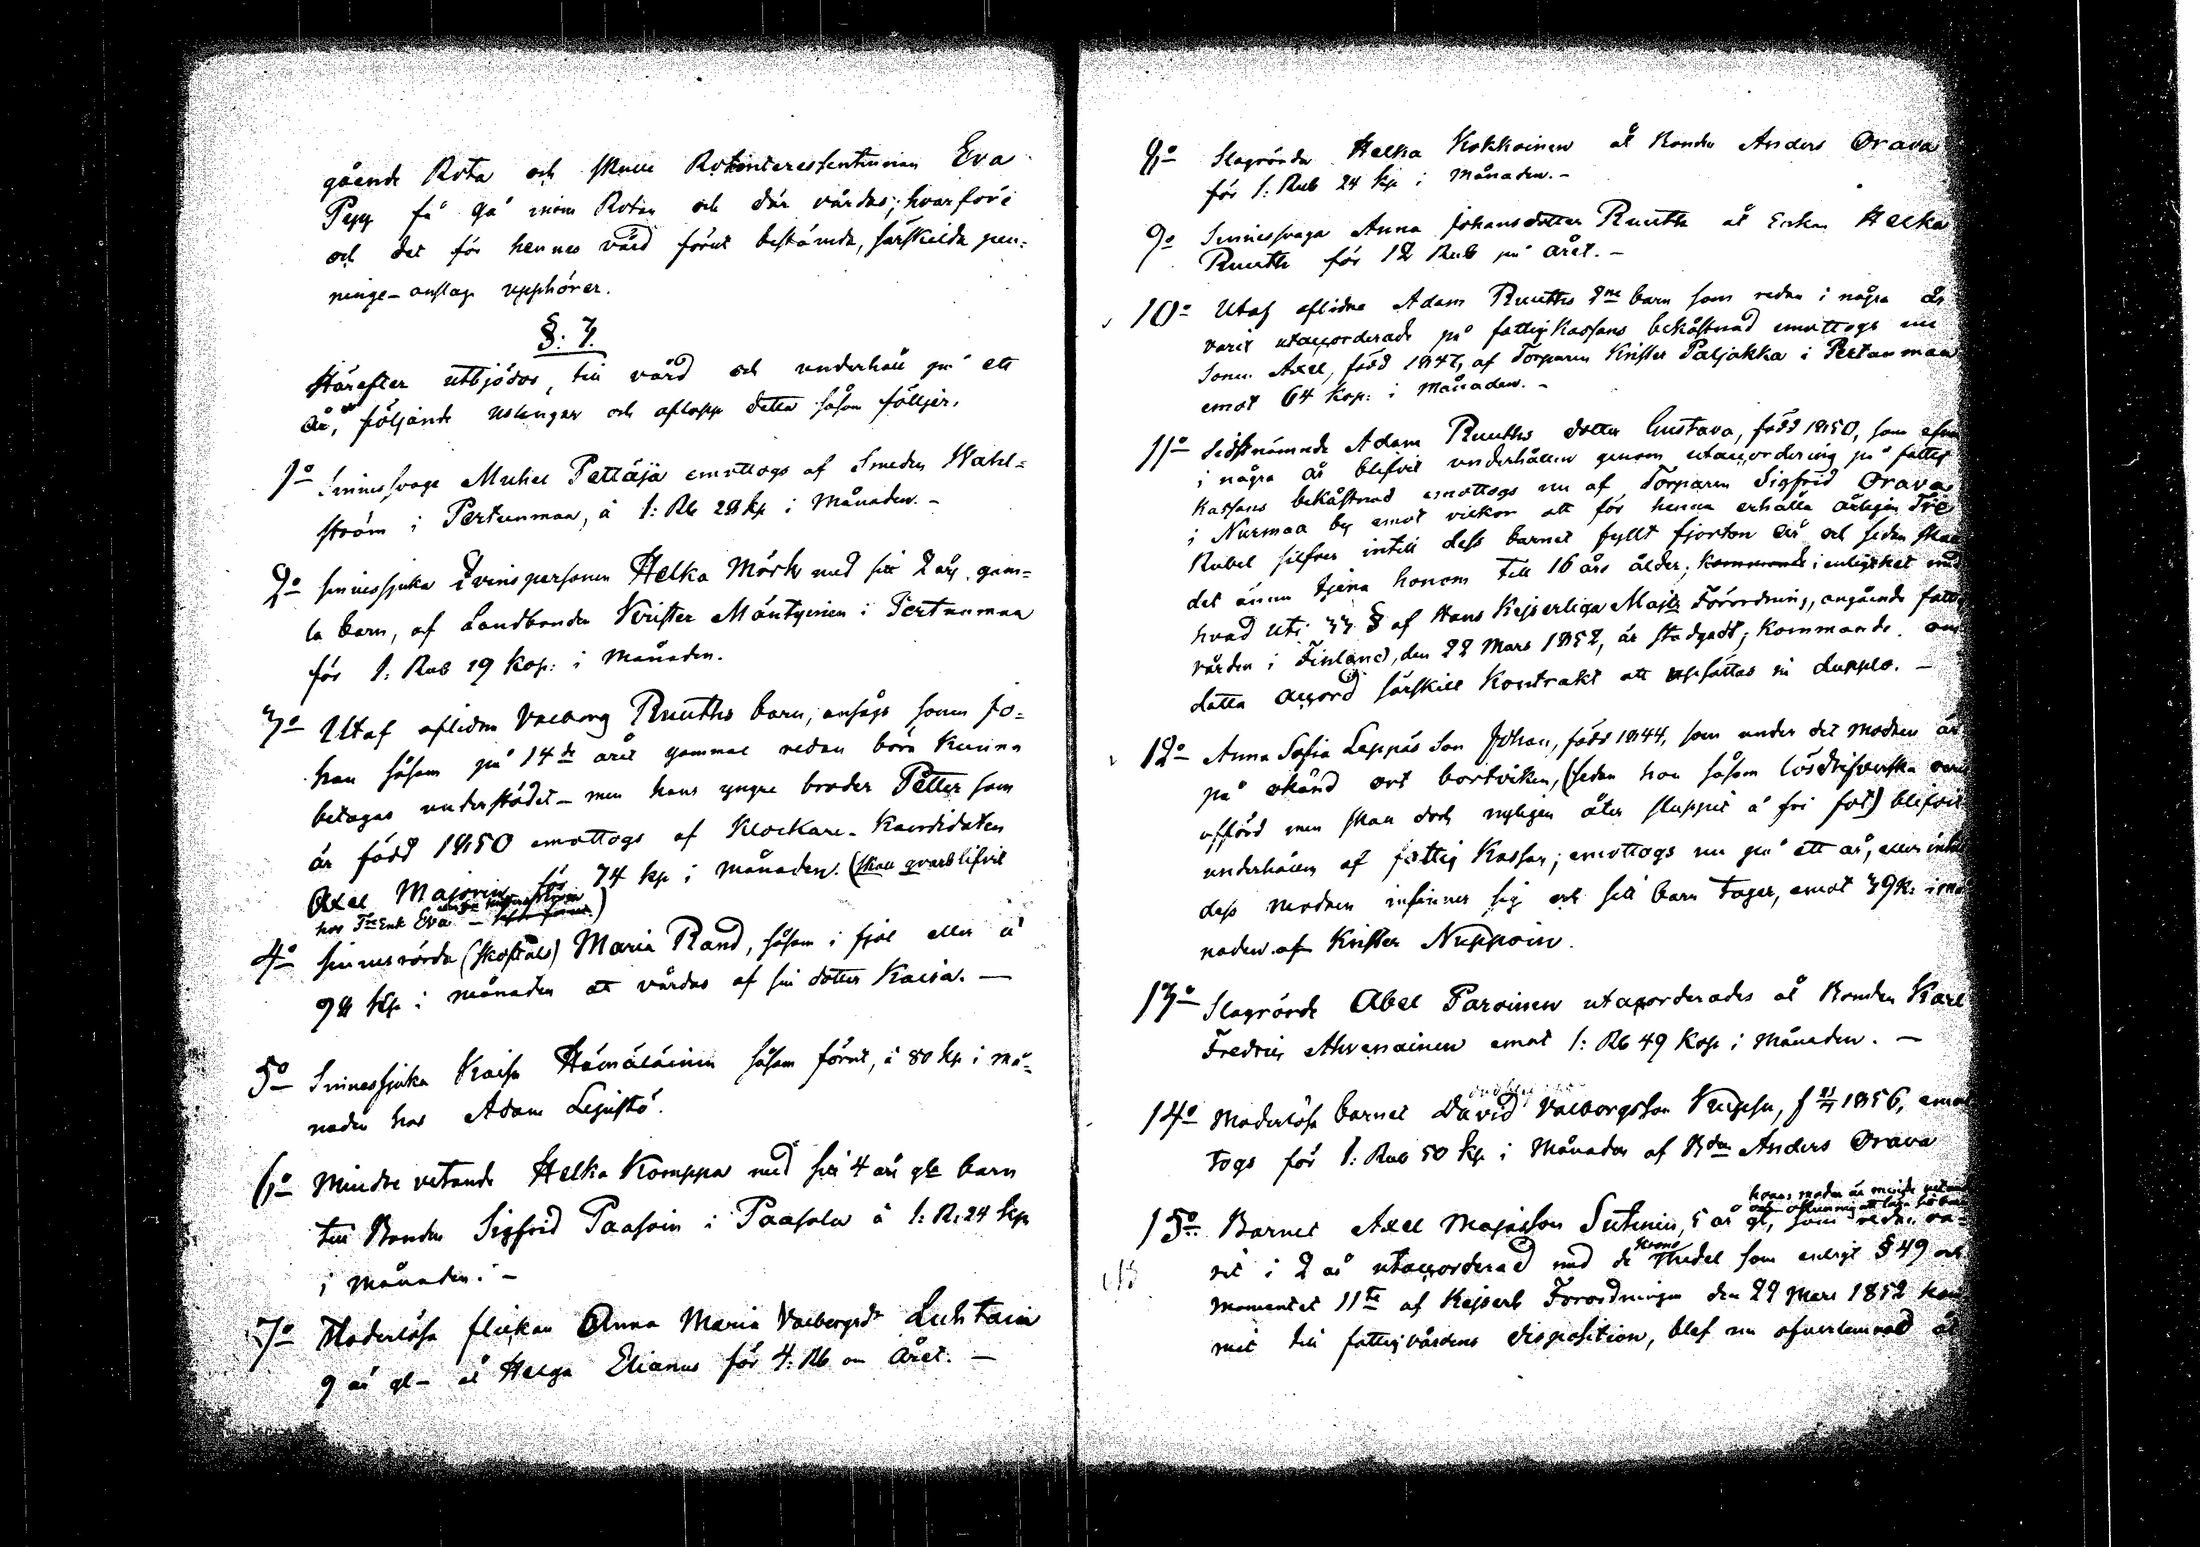 gående Rota och skulle Rotinteressentinnan Eva
Pyy få gå inom Rotan och där vårdas; hvarföre
och det för hennes vård förut bestämda, särskilda pen-
ninge-anslag upphörer.
§: 7.
Härefter utbjödos, till vård och underhåll på ett
år, följande uslingar och aflopp detta såsom följer.
1o Sinnessvage Michel Pettäjä emottogs af Smeden Wahl-
ström i Pertunmaa, á 1: Rb 28 kp i månaden. -
2o sinnessjuka qvinspersonen Helka Mörk med sitt 2 åri gam-
la barn, af Landbonden Krister Mäntyinen i Pertunmaa
för 1. Rub 19 kop: i månaden.
3o Utaf aflidne Valborg Ruuths barn, ansågs sonen Jo-
han såsom på 14de året gammal redan böra kunna
betagas understödet - men hans yngre broder Petter som
är född 1850 emottogs af Klockare-Kandidaten
Axel Majorin för 74 kp i månaden. (skall qvarblifvit
hos Enk Eva)
4o sinnesrörda Maria Rand, såsom i fjol eller á
98 kp i månaden att vårdas af sin dotter Kaisa. -
5o Sinnessjuka Kaisa Hämäläinen såsom förut, á 80 kp i må-
naden hos Adam Lejströ.
6o Mindre vetande Helka Komppa med sitt 4 åri gla barn
till Bonden Sigfrid Paasoin i Paasola á 1: R. 24 kp
i månaden. -
7o Moderlösa flickan Anna Maria Valborgsdr Luhtain
9 år gl - åt Helga Elianus för 4: Rb om året. -
8o Slagrörda Helka Kokkoinen åt Bonden Anders Orava
för 1: Rub 24 kp i månaden. -
9o Sinnessvaga Anna Johansdotter Ruuth åt Enkan Helka
Ruuth för 12 Rub på året. -
10o Utaf aflidne Adam Ruuths 2ne barn som redan i några år
varit utaccorderade på fattigkassans bekåstnad emottogs nu
sonen Axel, född 1847, af Torparen Krister Paljakka i Pertunmaa
emot 64 kop: i månaden. -
11o Sidstnämnde Adam Ruuths dotter Gustava, född 1850, som äfven
i några år blifvit underhållen genom utaccordering på fattig
Kassans bekåstnad emottogs nu af Torparen Sigfrid Orava
i Nurmaa by emot vilkor att för henne erhålla årligen Tre
Rubel silfver intill dess barnet fyllt fjorton år och sedan skall
det ännu tjena honom till 16 års ålder; kommande i enlighet med
hvad uti 33 § af Hans Kejserliga Majts Förordning, angående fattig
vården i Finland, den 22 Mars 1852, är stadgadt; kommande om
detta accord särskilt Kontrakt att uppsättas in dupplo. -
12o Anna Sofia Leppäs son Johan, född 1844, som under det modren är
på okänd ort bortviken, (sedan hon såsom lösdrifverska varit
afförd men skall dock nyligen åter sluppit å fri fot) blifvit
underhållen af fattig Kassan; emottogs nu på ett år, eller intill
dess modren infinner sig och sitt barn tager, emot 39 k: i må
naden af Krister Nuppoin.
13o Slagrörde Abel Paroinen utaccorderades åt Bonden Karl
Fredric Ahvenainen emot 1: Rb 49 kop i månaden. -
14o Moderlösa barnet David Valborgsson Kuppu, f 1856, emot
togs för 1: Rub 50 kp i månaden af Bden Anders Orava
hvars moder är mindre vetande
15o Barnet Axel Majasson Sutinen, 5 år gl, som redan va-
rit i 2 år utaccorderad med de Krono Medel som enligt § 49 och
momentet 11te af Kejserl Förordningen den 22 Mars 1852 kom
mit till fattigvårdens disposition, blef nu öfverlemnad åt